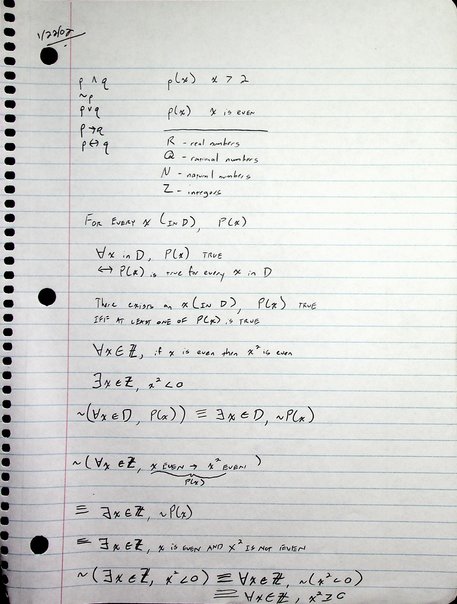 1/22/07
p ∧ q p(x) x > 2
~p
p ∨ q p(x) x is even
p → q
p ↔ q R - real numbers
Q - rational numbers
N - natural numbers
Z - intergers
For every x (in D), P(x)
∀x in D, P(x) true
↔ P(x) is true for every x in D
There exists an x (in D), P(x) true
iff at least one of P(x) is true
∀x∈ℤ, if x is even then x² is even
∃x∈ℤ, x² < 0
~(∀x∈D, P(x)) ≡ ∃x∈D, ~P(x)
~(∀x∈ℤ, x even → x² even)
P(x)
≡ ∃x∈ℤ, ~P(x)
≡ ∃x∈ℤ, x is even and x² is not even
~(∃x∈ℤ, x² < 0) ≡ ∀x∈ℤ, ~(x² < 0)
≡ ∀x∈ℤ, x² ≥ 0